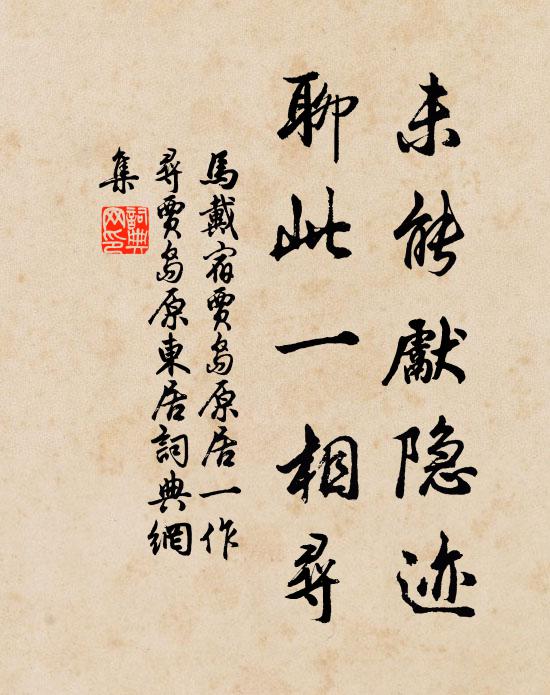 未能獻隐迹
聊此一相尋
馬戴宿賈島原居一作
尋賈島原東居詞典網
集
詞典網印